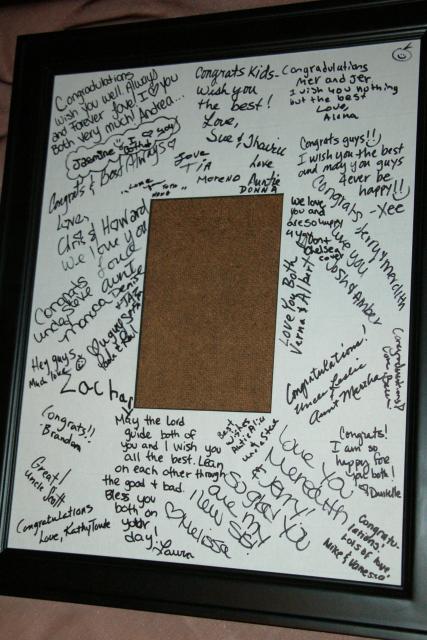 Congradulations
wish you well. Always
and forever love! I you
Both very much! Andrea...
Jasmine
Congrats & Best Always
Love,
Chris & Howard
We love you
Congrats
uncle Steve
Hey guys
Much love
Zachary
Congrats!!
Brandon
Great!
Uncle
Congratulations
Love, Kathy
Congrats Kids-
wish you
the best!
Love,
Sue &
Love
TIA
MORENO
Love
Auntie
DONNA
Congradulations
Mer and Jer
I wish you nothing
but the best
Love,
Alma
Congrats guys!!
I wish you the best
and may you guys
4ever be
happy!!
-Xee
Congrats Jerry & Meredith
Love you
Josh & Amber
we love
you and
are so happy
4 you
Dont
Chelsea
cover
Love You Both
Verna & Albert
Congratulations!
Uncle Leslie
Aunt Martha
Congradulations!
Congrats!
I am so
happy for
you both!
Danielle
Congratu-
lations!
Lots of love
Mike & Vanessa
Best
wishes
Love You
Meredith
& Jerry!
So glad you
are my
new sis!
Melissa
May the Lord
guide both of
you and I wish you
all the best. Lean
on each other through
the good & bad.
Bless you
both on
your
day!
Laura